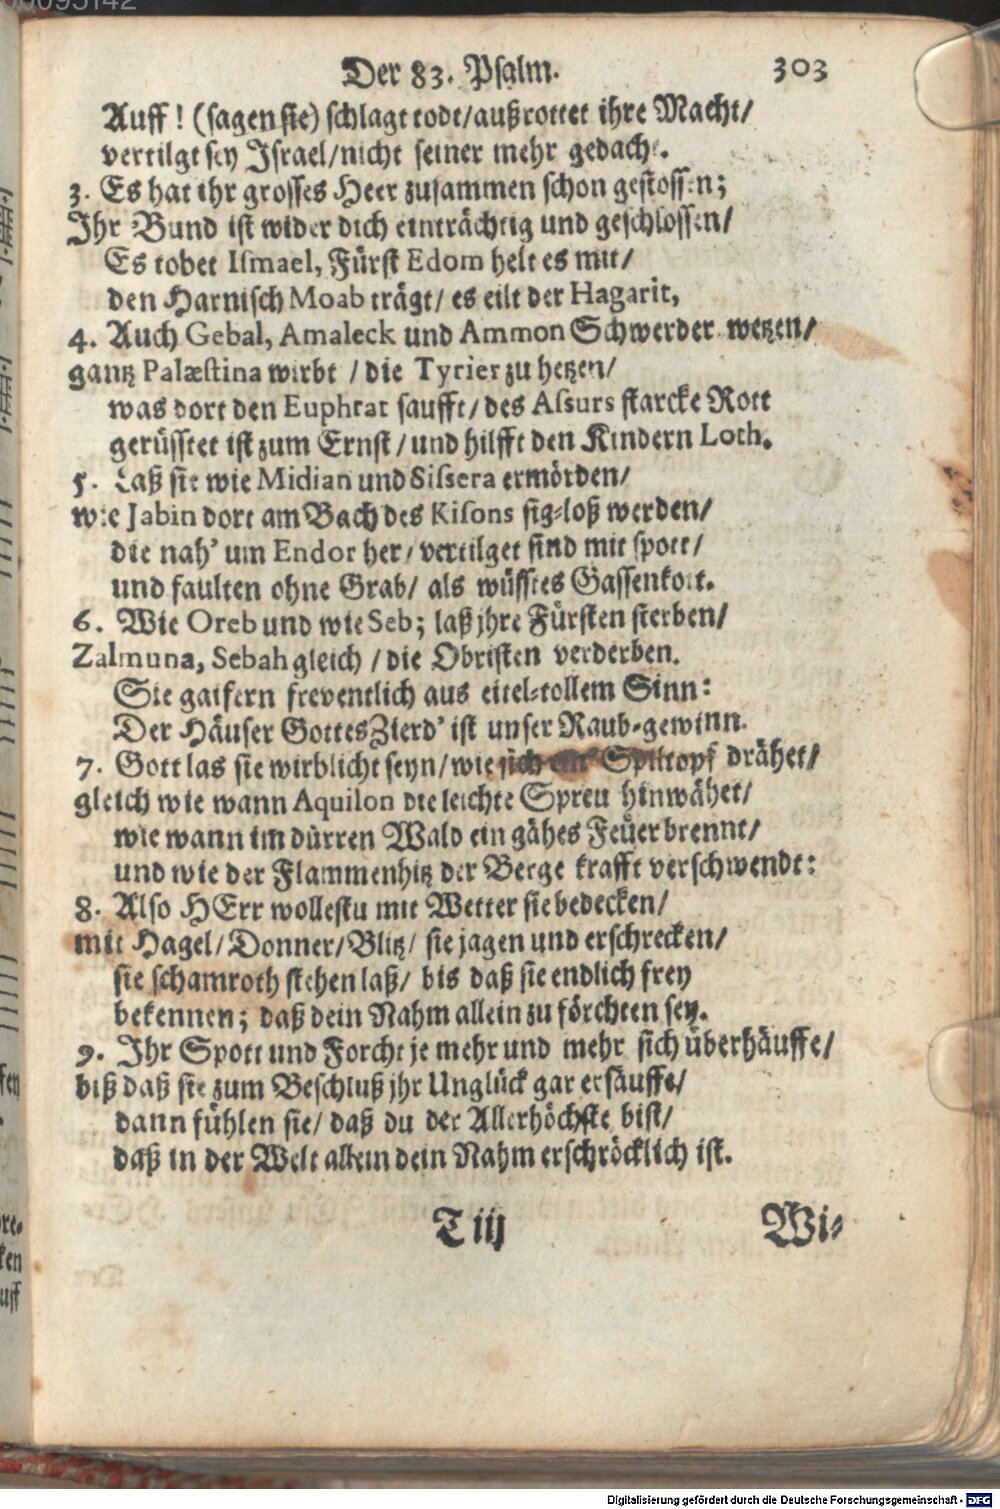 00095142
Der 83. Psalm. 303
Auff! (sagen sie) schlagt todt/außrottet ihre Macht/
vertilgt sey Israel/nicht seiner mehr gedacht.
3. Es hat ihr grosses Heer zusammen schon gestossen;
Ihr Bund ist wider dich einträchtig und geschlossen/
Es tobet Ismael, Fürst Edom helt es mit/
den Harnisch Moab trägt/ es eilt der Hagarit,
4. Auch Gebal, Amaleck und Ammon Schwerder wetzen/
gantz Palæstina wirbt / die Tyrier zu hetzen/
was dort den Euphrat saufft/des Assurs starcke Rott
gerüsstet ist zum Ernst/und hilfft den Kindern Loth.
5. Laß sie wie Midian und Sissera ermörden/
wie Jabin dort am Bach des Kisons sig-loß werden/
die nah' um Endor her/vertilget sind mit spott/
und faulten ohne Grab/ als wüsstes Gassenkott.
6. Wie Oreb und wie Seb; laß jhre Fürsten sterben/
Zalmuna, Sebah gleich /die Obristen verderben.
Sie gaifern freventlich aus eitel-tollem Sinn:
Der Häuser Gottes Zierd' ist unser Raub-gewinn.
7. Gott las sie wirblicht seyn/wie sich ein Spiltopf drähet/
gleich wie wann Aquilon die leichte Spreu hinwähet/
wie wann im dürren Wald ein gähes Feuer brennt/
und wie der Flammenhitz der Berge krafft verschwendt:
8. Also HErr wollestu mit Wetter sie bedecken/
mit Hagel/Donner/Blitz/ sie jagen und erschrecken/
sie schamroth stehen laß/ bis daß sie endlich frey
bekennen; daß dein Nahm allein zu förchten sey.
9. Ihr Spott und Forcht je mehr und mehr sich überhäuffe/
biß daß sie zum Beschluß jhr Unglück gar ersäuffe/
dann fühlen sie/ daß du der Allerhöchste bist/
daß in der Welt allein dein Nahm erschröcklich ist.
T iij Wi-
Digitalisierung gefördert durch die Deutsche Forschungsgemeinschaft - DFG